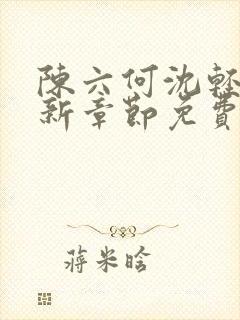 陳六何沈輕
新章節免費
蔣米晗